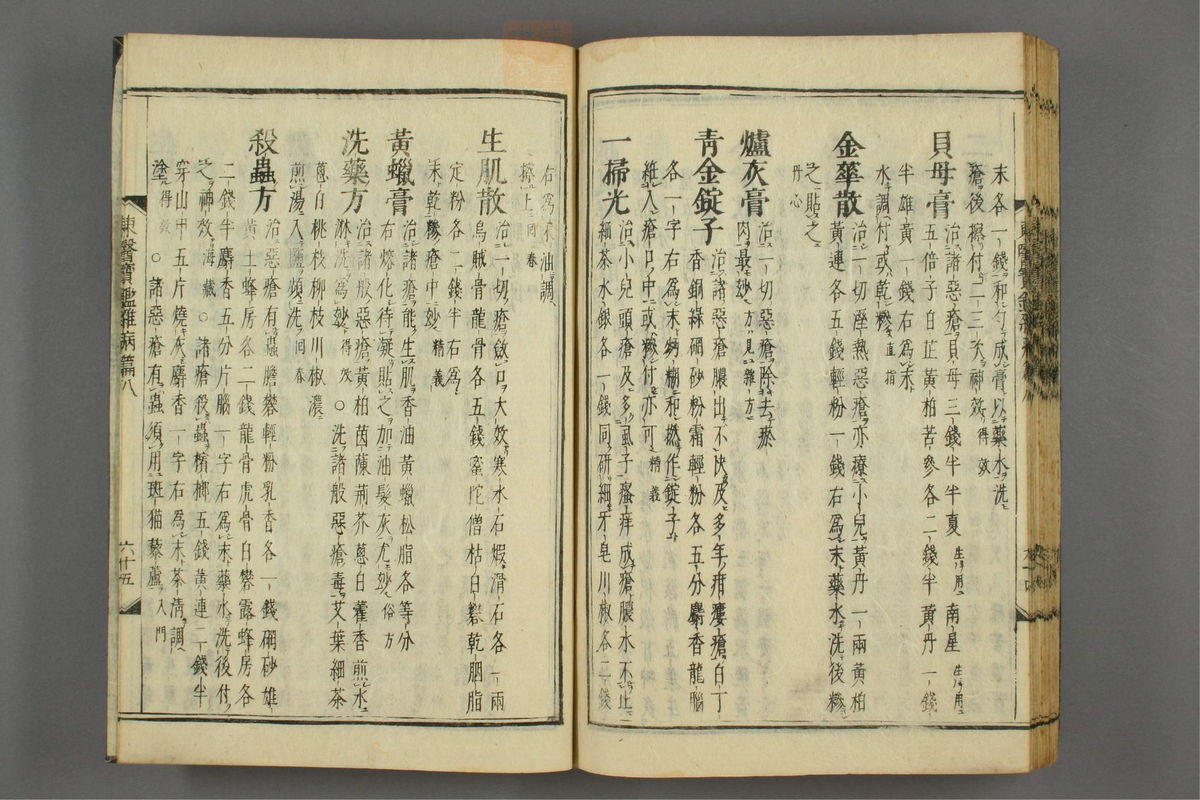 末各一錢和勻成膏以藥水洗
瘡後摻付二三次神效得效
貝母膏 治諸惡瘡貝母三錢半半夏生用南星生用
五倍子白芷黃柏苦參各二錢半黃丹一錢
半雄黃一錢右爲末
水調付或乾糝直指
金華散 治一切痤熱惡瘡亦療小兒黃丹一兩黃柏
黃連各五錢輕粉一錢右爲末藥水洗後糝
之貼之
丹心
爐灰膏 治一切惡瘡除去瘀
肉最妙方見雜方
靑金錠子 治諸惡瘡膿出不快及多年疳瘻瘡白丁
香銅綠硇砂粉霜輕粉各五分麝香龍腦
各一字右爲末麪糊和撚作錠子
絍入瘡口中或糝付亦可精義
一掃光 治小兒頭瘡及多虱子瘙痒成瘡膿水不止
細茶水銀各一錢同研細牙皂川椒各二錢
右爲末油調
搽上回春
生肌散 治一切瘡斂口大效寒水石滑石各一兩
烏賊骨龍骨各五錢蜜陀僧枯白礬乾胭脂
定粉各二錢半右爲
末乾糝瘡中妙精義
黃蠟膏 治諸瘡能生肌香油黃蠟松脂各等分
右熔化待凝貼之加油髮灰尤妙俗方
洗藥方 治諸般惡瘡黃柏茵蔯荊芥蔥白藿香煎水
淋洗爲妙得效○洗諸般惡瘡毒艾葉細茶
蔥白桃枝柳枝川椒濃
煎湯入鹽頻洗回春
殺蟲方 治惡瘡有蟲膽礬輕粉乳香各一錢硇砂雄
黃土蜂房各二錢龍骨虎骨白礬露蜂房各
二錢半麝香五分片腦一字右爲末藥水洗後付
之神效海藏○諸瘡殺蟲檳榔五錢黃連二錢半
穿山甲五片燒灰麝香一字右爲末茶淸調
塗得效○諸惡瘡有蟲須用斑猫藜蘆入門
東醫寶鑑雜病篇八
六十五